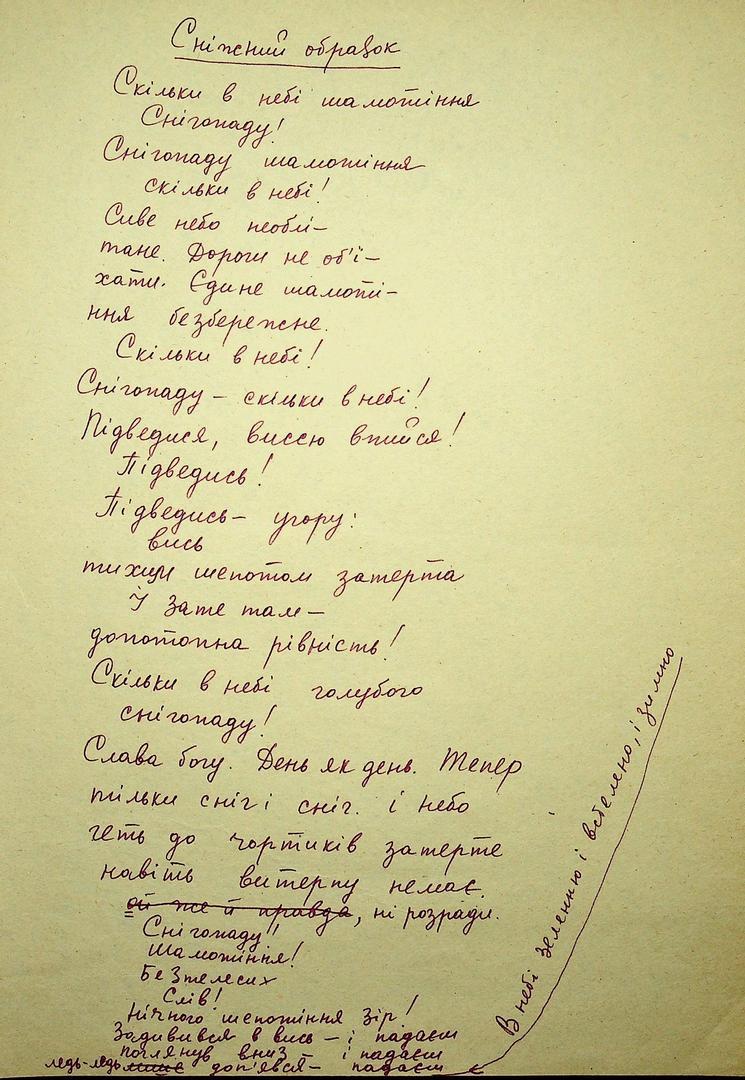 Сніжний образок
Скільки в небі шамотіння
Снігопаду!
Снігопаду шамотіння
скільки в небі!
Сиве небо необлі-
тане. Дороги не об'ї-
хати. Єдине шамоті-
ння безбережне.
Скільки в небі!
Снігопаду – скільки в небі!
Підведися, виссю впийся!
Підведись!
Підведись – угору:
вись
тихим шепотом затерта
Й зате там –
допотопна рівність!
Скільки в небі голубого
снігопаду!
Слава богу. День як день. Тепер
тільки сніг і сніг. і небо
геть до чортиків затерте
навіть витерпу немає.
ой же й правда, ні розради.
Снігопаду!
Шамотіння!
Безтелесих
Слів!
Нічного шепотіння зір!
Задивився в вись – і падаєш
поглянув вниз – і падаєш
ледь-ледь лише доп'явся – падаєш
В небі зеленню і встелено, і зимно